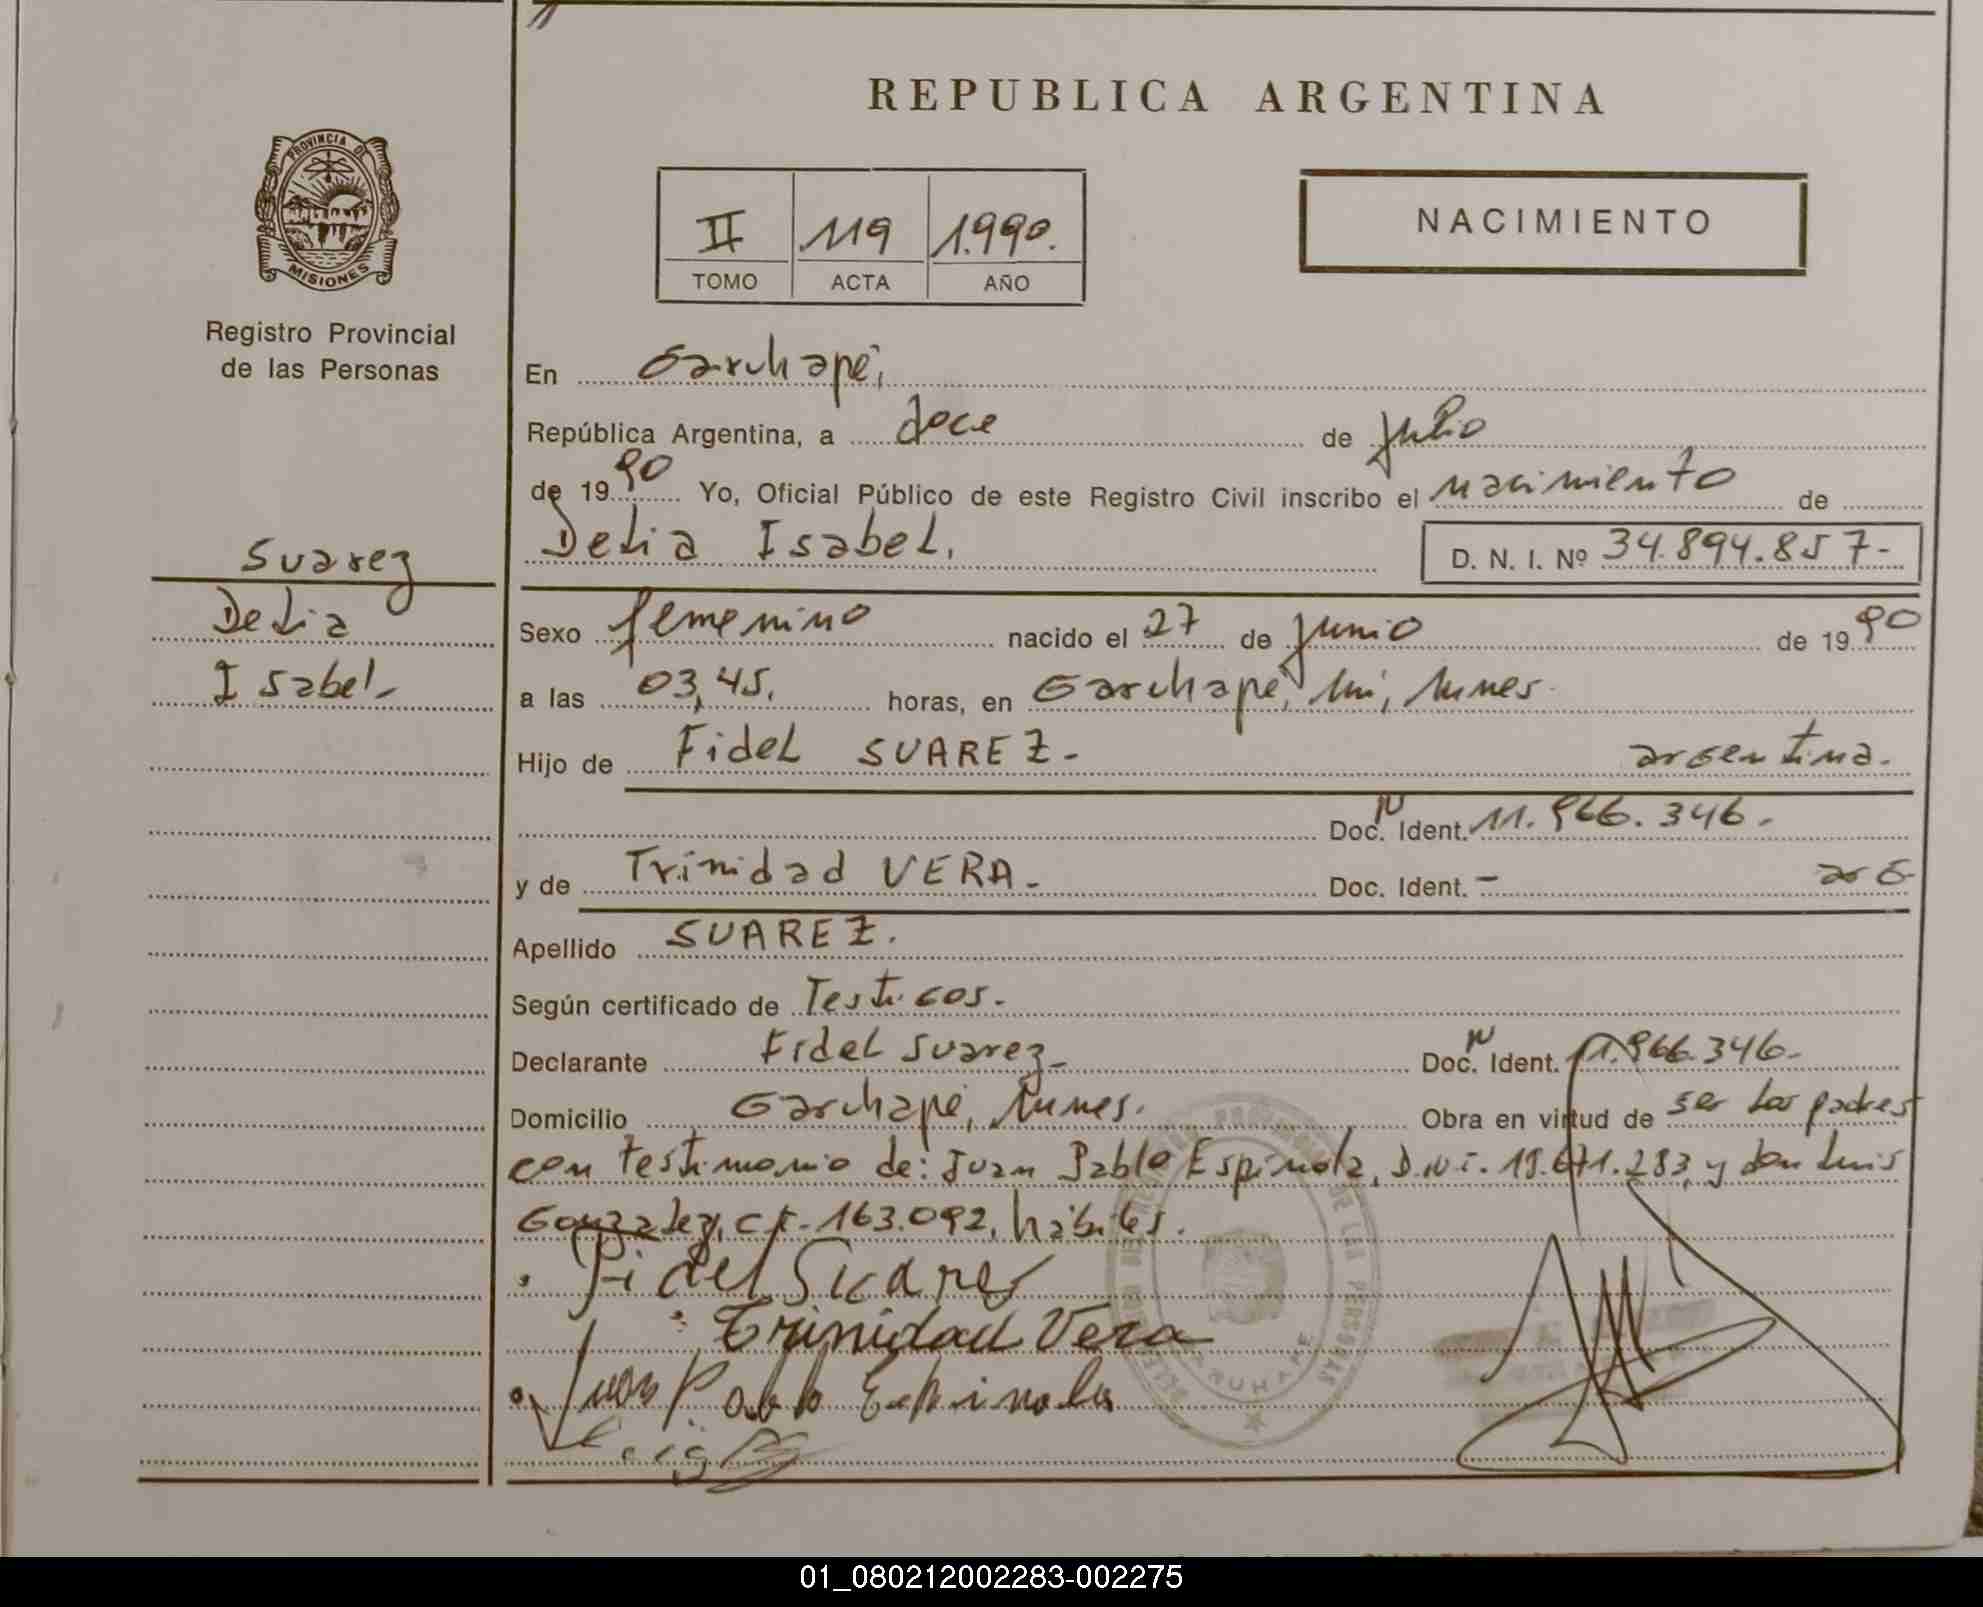 REPUBLICA ARGENTINA
PROVINCIA DE
MISIONES
Registro Provincial
de las Personas
II 119 1.990.
TOMO ACTA AÑO
NACIMIENTO
En Garuhapé,
República Argentina, a doce de julio
de 1990 Yo, Oficial Público de este Registro Civil inscribo el nacimiento de
Delia Isabel. D. N. I. Nº 34.894.857-
Suarez
Delia
Isabel-
Sexo femenino nacido el 27 de junio de 1990
a las 03,45. horas, en Garuhapé,
Hijo de Fidel SUAREZ- argentina.
Doc. Ident. 11.966.346.
y de Trinidad VERA- Doc. Ident. - arg
Apellido SUAREZ.
Según certificado de Testigos.
Declarante Fidel Suarez- Doc. Ident. 11.966.346-
Domicilio Garuhapé, Obra en virtud de ser los padres
con testimonio de: Juan Pablo Espinola, D.N.I. 19.671.283, y don Luis
Gonzalez, 163.092, hábiles.
Fidel Suarez
Trinidad Vera
Juan Pablo Espinola
GARUHAPE
01_080212002283-002275